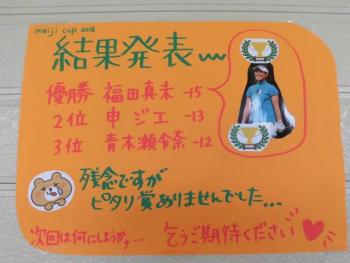 meiji cup 2018
結果発表
優勝 福田真未 -15
2位 申ジエ -13
3位 青木瀬令奈 -12
残念ですが
ピタリ賞ありませんでした...
次回は何にしようカナ...
乞うご期待ください